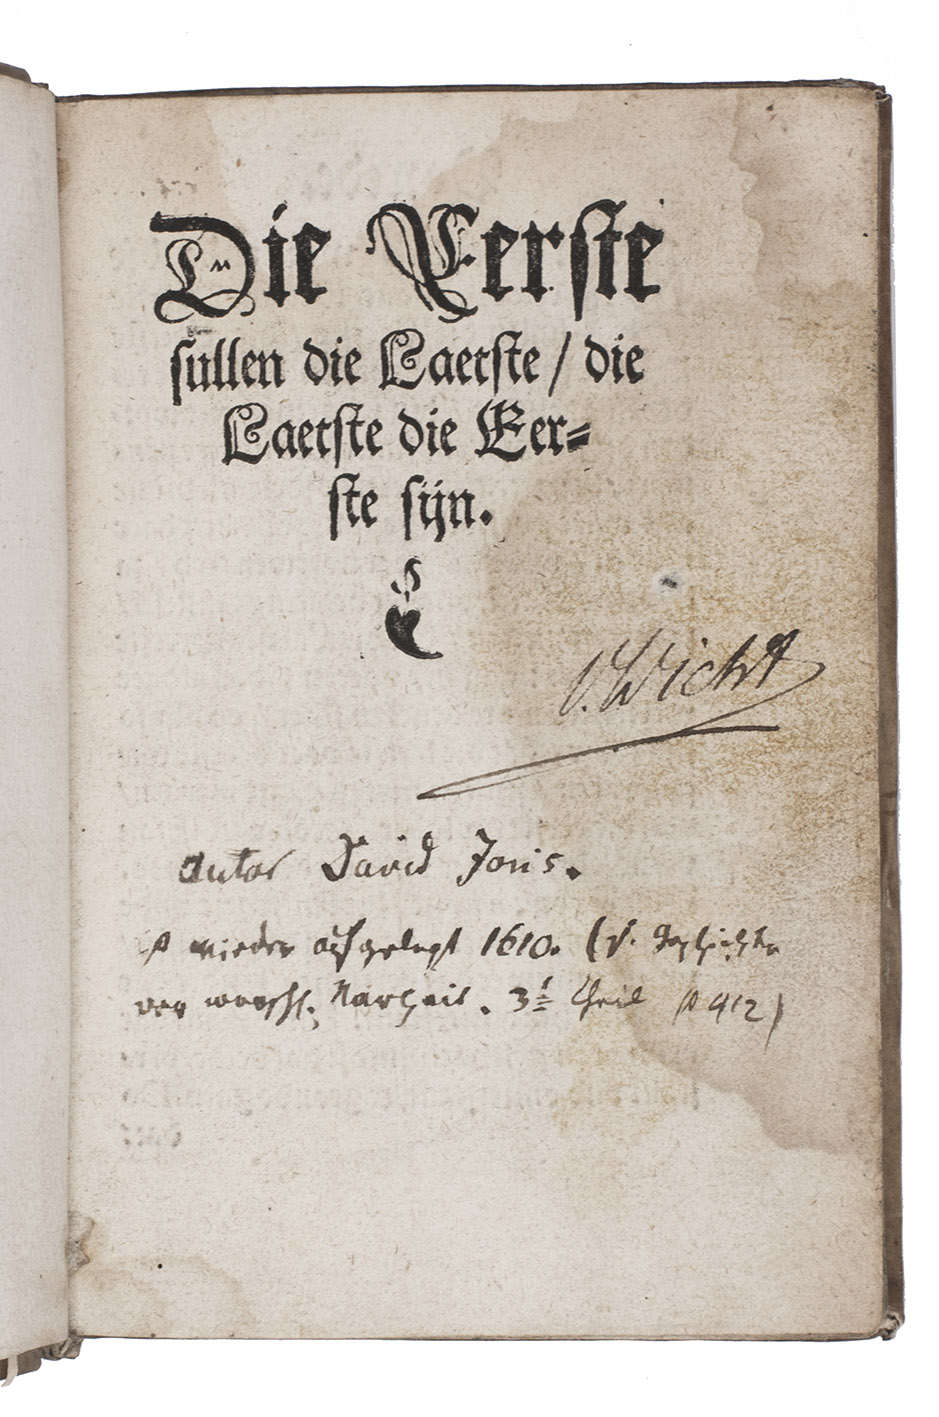 Die Eerste
sullen die Laetste / die
Laetste die Eer⸗
ste sijn.
v. Wicht
autor David Joris.
ist wieder aufgelegt 1610. (v. Geschichte
der menschl. Narheit. 3t Theil p 412)